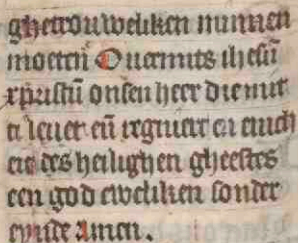 ghetrouweliken minnen
moeten Ouermits ihesū
xpristū onsen heer die mit
ti leuet eñ regniert in enich
eit des heilighen gheestes
een god eweliken sonder
eynde Amen.